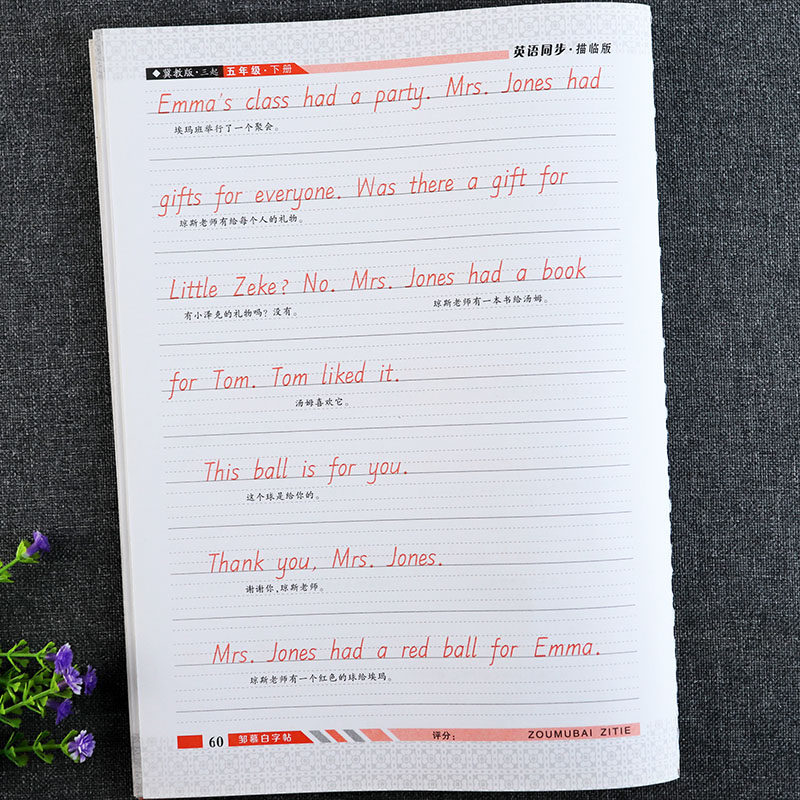 英语同步·描临版
◆冀教版·三起 五年级·下册
Emma's class had a party. Mrs. Jones had
埃玛班举行了一个聚会。
gifts for everyone. Was there a gift for
琼斯老师有给每个人的礼物。
Little Zeke? No. Mrs. Jones had a book
有小泽克的礼物吗？没有。 琼斯老师有一本书给汤姆。
for Tom. Tom liked it.
汤姆喜欢它。
This ball is for you.
这个球是给你的。
Thank you, Mrs. Jones.
谢谢你,琼斯老师。
Mrs. Jones had a red ball for Emma.
琼斯老师有一个红色的球给埃玛。
60 邹慕白字帖 评分： ZOUMUBAI ZITIE